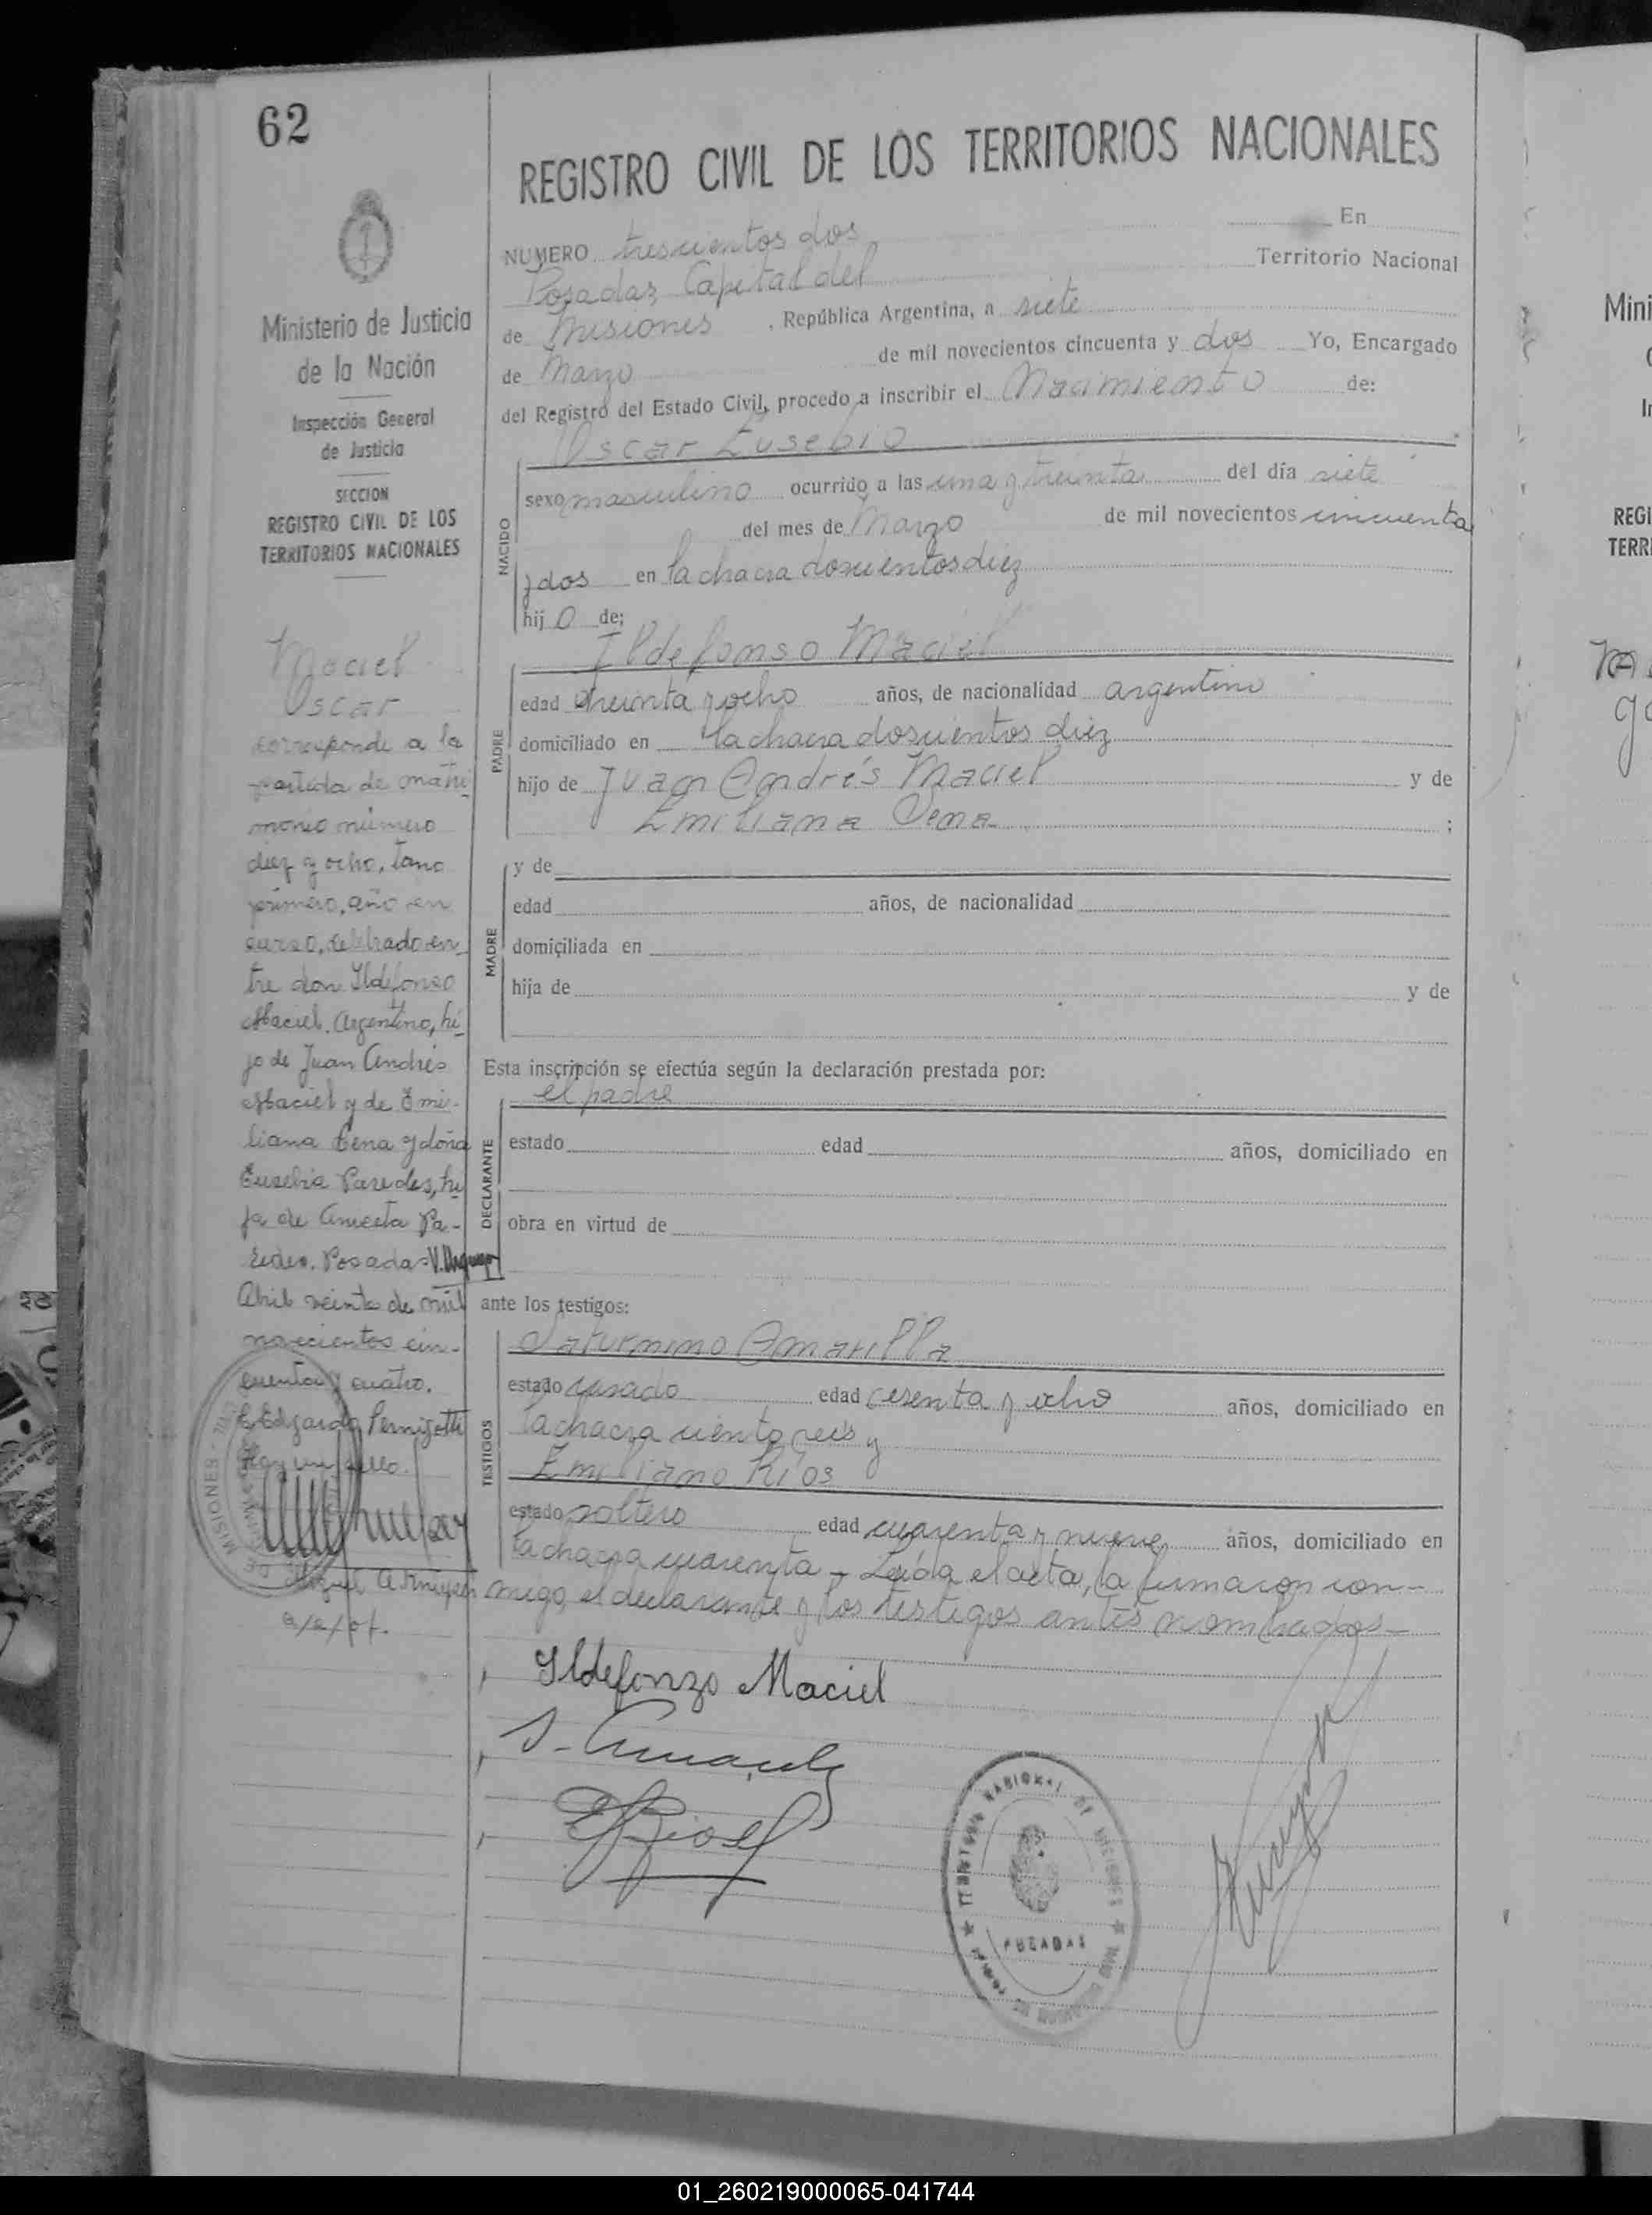 62
REGISTRO CIVIL DE LOS TERRITORIOS NACIONALES
Ministerio de Justicia
de la Nación
Inspección General
de Justicia
SECCION
REGISTRO CIVIL DE LOS
TERRITORIOS NACIONALES
Maciel
Oscar
corresponde a la
partida de matri
monio número
diez y ocho, tomo
primero, año en
curso, celebrado en
tre don Ildefonso
Maciel, Argentino, hi
jo de Juan Andrés
Maciel y de Emi-
liana Sena y doña
Eusebia Paredes, hi
ja de Aniceta Pa-
redes. Posadas
Abril veinte de mil
novecientos cin-
cuenta y cuatro.
Edgardo Pernigotti
Hay un sello.
a/c/of.
NUMERO trescientos dos En
Posadas, Capital del Territorio Nacional
de Misiones, República Argentina, a siete
de Marzo de mil novecientos cincuenta y dos Yo, Encargado
del Registro del Estado Civil, procedo a inscribir el Nacimiento de:
Oscar Eusebio
NACIDO
sexo masculino ocurrido a las una y treinta del día siete
del mes de Marzo de mil novecientos cincuenta
y dos en la chacra doscientos diez
hij o de:
Ildefonso Maciel
PADRE
edad treinta y ocho años, de nacionalidad argentino
domiciliado en la chacra doscientos diez
hijo de Juan Andrés Maciel y de
Emiliana Sena ;
MADRE
y de
edad años, de nacionalidad
domiciliada en
hija de y de
Esta inscripción se efectúa según la declaración prestada por:
el padre
DECLARANTE
estado edad años, domiciliado en
obra en virtud de
ante los testigos:
TESTIGOS
Saturnino Amarilla
estado casado edad cesenta y ocho años, domiciliado en
la chacra ciento seis y
Emiliano Ríos
estado soltero edad cuarenta y nueve años, domiciliado en
la chacra cuarenta - Leída el acta, la firmaron con-
migo, el declarante y los testigos antes nombrados-
Ildefonzo Maciel
S. Amarilla
E Rios
TERRITORIO NACIONAL DE MISIONES
POSADAS
MISIONES
Mini
REGI
TERR
01_260219000065-041744